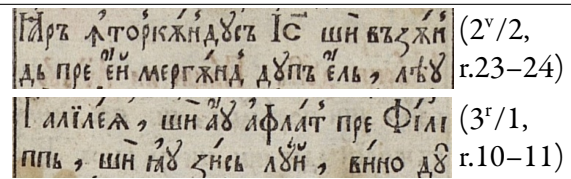 Ꙗръ ꙟторкѫндꙋсъ І҃С шѝ възѫн (2ᵛ/2,
дь пре е҆́й мергѫнд дꙋпъ е҆́ль, лѣꙋ r.23–24)
Галїле́ѧ, шѝ а҆́ꙋ а҆фла́т пре Фі́лі (3ʳ/1,
ппь, шѝ ꙗ҆́ꙋ зись лꙋ́й, ви́но дꙋ r.10–11)